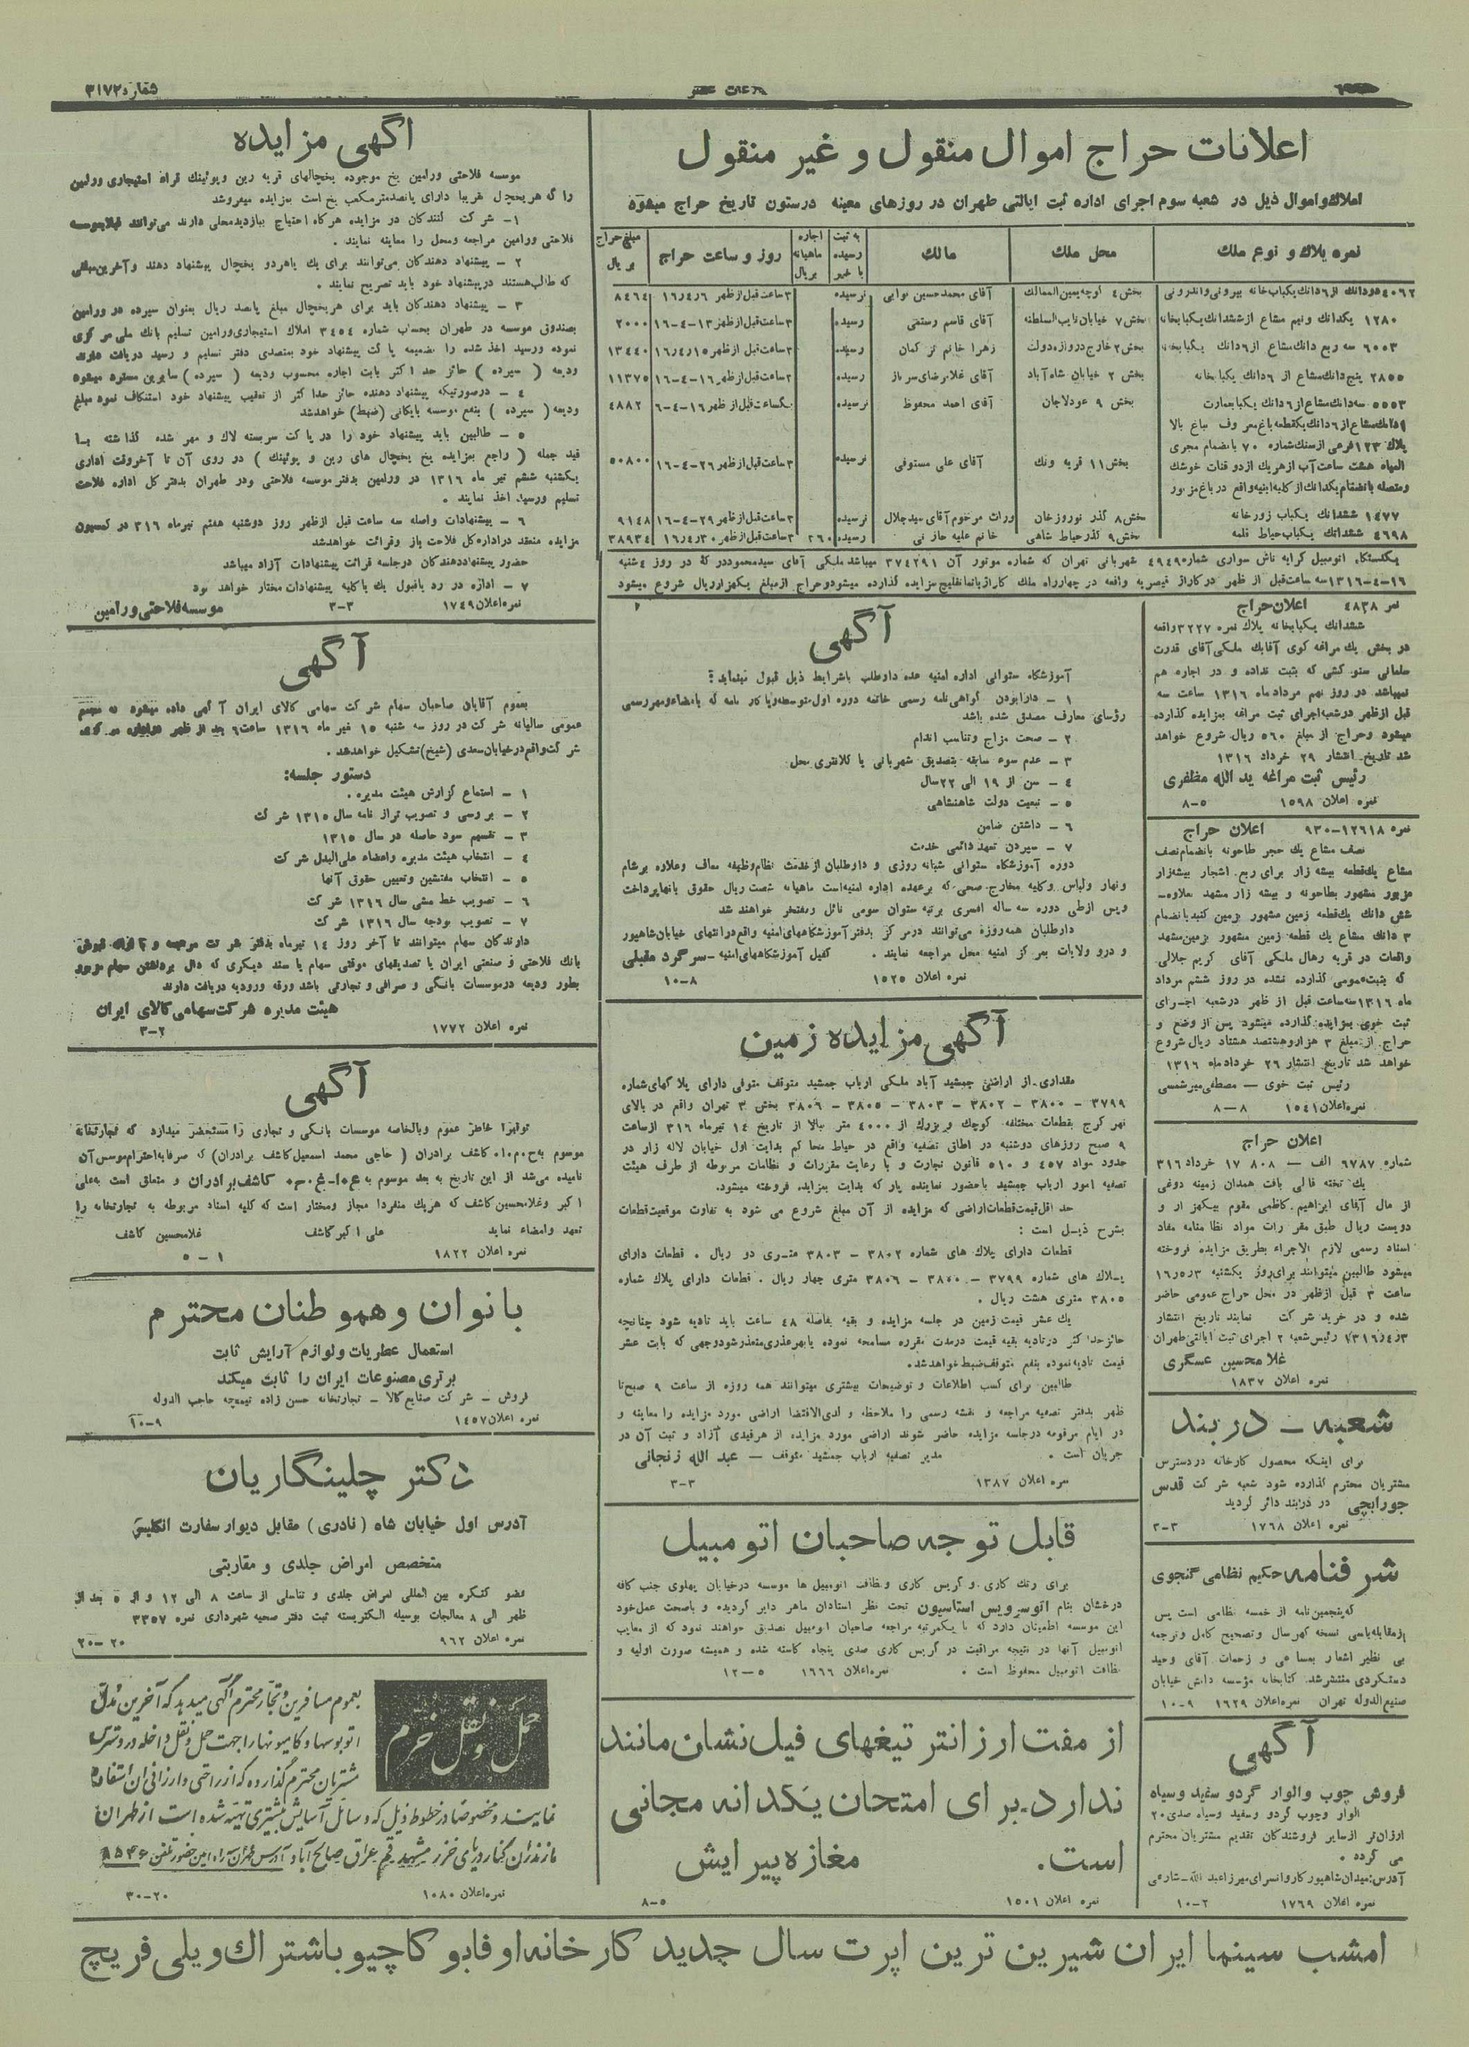 شماره ۳۱۷۲
اعلانات حراج اموال منقول و غیر منقول
املاک و اموال ذیل در شعبه سوم اجرای اداره ثبت ایالتی طهران در روزهای معینه درستون تاریخ حراج میشود
نمره پلاک و نوع ملک محل ملک مالک به ثبت رسیده یا خیر اجاره ماهیانه بریال روز و ساعت حراج مبلغ حراج بریال
بخش ۴ کوچه یمین الممالک آقای محمدحسین نوابی نرسیده ۳ساعت قبل از ظهر ۱۶٫۴٫۶ ۸۴۶۴
۱۲۸۰ یکدانک ونیم مشاع از ششدانک یکبابخانه بخش ۷ خیابان نایب السلطنه آقای قاسم رستمی رسیده ۳ساعت قبل از ظهر ۱۳-۴-۱۶ ۲۰۰۰
۶۰۵۳ سه ربع دانک مشاع از ۶دانک یکبابخانه بخش ۲ خارج دروازه دولت زهرا خانم رسیده ۳ساعت قبل از ظهر ۱۶٫۴٫۱۵ ۱۳۴۴۰
۲۸۵۵ پنج دانک مشاع از ۶دانک یکبابخانه بخش ۲ خیابان شاه آباد آقای غلامرضای سرباز رسیده ۲ساعت قبل از ظهر ۱۶-۴-۱۶ ۱۱۳۷۵
۵۵۵۳ سه دانک مشاع از ۶دانک یکبابعمارت بخش ۹ عودلاجان آقای احمد محفوظ نرسیده یکساعت قبل از ظهر ۱۶-۴-۶ ۴۸۸۲
پلاک ۱۲۳ فرعی از سنک شماره ۷۰ بانضمام مجری
المیاه هشت ساعت آب از هریک از دو قنات خوشک
ومتصله بانضمام یکدانک از کلیه ابنیه واقع در باغ مزبور
بخش ۱۱ قریه ونک آقای علی مستوفی نرسیده ۳ساعت قبل از ظهر ۲۶-۴-۱۶ ۵۰۸۰۰
۱۴۷۷ ششدانک یکباب زورخانه بخش ۸ گذر نوروزخان وراث مرحوم آقای سیدجلال نرسیده ۳ساعت قبل از ظهر ۲۹-۴-۱۶ ۹۱۴۸
۴۶۹۸ ششدانک یکباب حیاط بخش ۹ گذر حیاط شاهی رسیده ۲۶۰ ۳ساعت قبل از ظهر ۱۶٫۴٫۳۰ ۳۸۹۳۴
یکدستگاه اتومبیل کرایه ناش سواری شماره ۴۹۴۹ شهربانی تهران که شماره موتور آن ۳۷۴۲۹۱ میباشد ملکی آقای سیدمحمود در روز ۴شنبه
۱۶-۴-۱۳۱۶ سه ساعت قبل از ظهر در کاراژ قیصریه واقعه در چهارراه ملک بمزایده گذارده میشود و حراج از مبلغ یکهزار ریال شروع میشود
نمره ۴۸۳۸ اعلان حراج
ششدانک یکبابخانه پلاک نمره ۳۲۲۷ واقعه
در بخش یک مراغه کوی آقابک ملکی آقای قدرت
سلمانی که ثبت نداده و در اجاره هم
نمیباشد در روز نهم مرداد ماه ۱۳۱۶ ساعت سه
قبل از ظهر در شعبه اجرای ثبت مراغه بمزایده گذارده
میشود وحراج از مبلغ ۵۶۰ ریال شروع خواهد
شد تاریخ انتشار ۲۹ خرداد ۱۳۱۶
رئیس ثبت مراغه ید الله مظفری
نمره اعلان ۱۵۹۸ ۵-۸
نمره ۱۲۶۱۸-۹۳۰ اعلان حراج
نصف مشاع یک حجر طاحونه بانضمام نصف
مشاع یک قطعه بیشه زار برای ربع اشجار بیشه زار
مزبور مشهور بطاحونه و بیشه زار مشهد علاوه
شش دانک یک قطعه زمین مشهور بزمین کنید بانضمام
۳ دانک مشاع یک قطعه زمین مشهور بزمین مشهد
واقعات در قریه رهال ملکی آقای کریم جلالی
که بثبت عمومی گذارده نشده در روز ششم مرداد
ماه ۱۳۱۶ سه ساعت قبل از ظهر در شعبه اجرای
ثبت خوی بمزایده گذارده میشود پس از وضع و
حراج از مبلغ ۳ هزار وهشتصد هشتاد ریال شروع
خواهد شد تاریخ انتشار ۲۶ خرداد ماه ۱۳۱۶
رئیس ثبت خوی – مصطفی میرشمسی
نمره اعلان ۱۵۴۱ ۸-۸
اعلان حراج
شماره ۶۷۸۷ الف – ۸۰۸ ۱۷ خرداد ۳۱۶
یک تخته قالی بافت همدان زمینه دوغی
از مال آقای ابراهیم کاظمی مقوم بیکهزار و
دویست ریال طبق مقررات مواد نظامنامه مفاد
اسناد رسمی لازم الاجراء بطریق مزایده فروخته
میشود طالبین میتوانند برای روز یکشنبه ۱۶٫۵٫۳
ساعت ۳ قبل از ظهر در محل حراج عمومی حاضر
شده و در خرید شرکت نمایند تاریخ انتشار
۱۳۱۶٫۴٫۳ رئیس شعبه ۲ اجرای ثبت ایالتی طهران
غلامحسین عسگری
نمره اعلان ۱۸۳۷
شعبه – دربند
برای اینکه محصول کارخانه در دسترس
مشتریان محترم گذارده شود شعبه شرکت قدس
جورابچی در دربند دائر گردید
نمره اعلان ۱۷۶۸ ۳-۳
شرفنامه حکیم نظامی گنجوی
که پنجمین نامه از خمسه نظامی است پس
از مقابله باسی نسخه کهن سال وتصحیح کامل وترجمه
بی نظیر اشعار بمساعی و زحمات آقای وحید
دستکردی منتشر شد. کتابخانه مؤسسه دانش خیابان
صنیع الدوله تهران نمره اعلان ۱۶۲۹ ۹-۱۰
آگهی
فروش چوب والوار گردو سفید وسیاه
الوار وچوب گردو وسفید وسیاه صدی ۲۰
ارزان تر از سایر فروشندگان تقدیم مشتریان محترم
می گردد.
آدرس: میدان شاهپور کاروانسرای میرزا عبدالله
نمره اعلان ۱۷۶۹ ۲-۱۰
آگهی
آموزشگاه ستوانی اداره امنیه عده داوطلب باشرایط ذیل قبول مینماید:
۱ – دارا بودن گواهی نامه رسمی خاتمه دوره اول متوسطه و یا کارنامه که بامضاء ومهر رسمی
رؤسای معارف مصدق شده باشد
۲ – صحت مزاج وتناسب اندام
۳ – عدم سوء سابقه بتصدیق شهربانی یا کلانتری محل.
۴ – سن از ۱۹ الی ۲۲ سال
۵ – تبعیت دولت شاهنشاهی
۶ – داشتن ضامن
۷ – سپردن تعهد دائمی خدمت
دوره آموزشگاه ستوانی شبانه روزی و داوطلبان از خدمت نظام وظیفه معاف وعلاوه برشام
ونهار ولباس وکلیه مخارج صحی که برعهده اداره امنیه است ماهیانه شصت ریال حقوق بآنها پرداخت
وپس از طی دوره سه ساله افسری برتبه ستوان سومی نائل ومفتخر خواهند شد
داوطلبان همه روزه می توانند در مرکز بدفتر آموزشگاههای امنیه واقع در انتهای خیابان شاهپور
و در ولایات بمرکز امنیه محل مراجعه نمایند. کفیل آموزشگاههای امنیه – سرگرد مقبلی
نمره اعلان ۱۵۲۵ ۸-۱۰
آگهی مزایده زمین
مقداری از اراضی جمشید آباد ملکی ارباب جمشید متوقف متوفی دارای پلاکهای شماره
۳۷۹۹ – ۳۸۰۰ – ۳۸۰۲ – ۳۸۰۳ – ۳۸۰۵ – ۳۸۰۶ بخش ۳ تهران واقع در بالای
نهر کرج بقطعات مختلفه کوچک وبزرک از ۴۰۰۰ متر ببالا از تاریخ ۱۴ تیرماه ۳۱۶ از ساعت
۹ صبح روزهای دوشنبه در اطاق تصفیه واقع در حیاط محاکم بدایت اول خیابان لاله زار در
حدود مواد ۴۵۷ و ۵۱۰ قانون تجارت و با رعایت مقررات و نظامات مربوطه از طرف هیئت
تصفیه امور ارباب جمشید باحضور نماینده پارکه بدایت بمزایده فروخته میشود.
حد اقل قیمت قطعات اراضی که مزایده از آن مبلغ شروع می شود به تفاوت موقعیت قطعات
بشرح ذیل است:
قطعات دارای پلاک های شماره ۳۸۰۲ – ۳۸۰۳ متری دو ریال. قطعات دارای
پلاک های شماره ۳۷۹۹ – ۳۸۰۰ – ۳۸۰۶ متری چهار ریال. قطعات دارای پلاک شماره
۳۸۰۵ متری هشت ریال.
یک عشر قیمت زمین در جلسه مزایده و بقیه بفاصله ۴۸ ساعت باید تادیه شود چنانچه
حائز حداکثر در تادیه بقیه قیمت در مدت مقرره مسامحه نموده یا بهر عذری متعذر شود وجهی که بابت عشر
قیمت تادیه نموده بنفع متوقف ضبط خواهد شد.
طالبین برای کسب اطلاعات و توضیحات بیشتری میتوانند همه روزه از ساعت ۹ صبح تا
ظهر بدفتر تصفیه مراجعه و نقشه رسمی را ملاحظه و لدی الاقتضا اراضی مورد مزایده را معاینه و
در ایام مرقومه در جلسه مزایده حاضر شوند اراضی مورد مزایده از هر قیدی آزاد و ثبت آن در
جریان است. مدیر تصفیه ارباب جمشید متوقف – عبد الله زنجانی
نمره اعلان ۱۳۸۷ ۳-۳
قابل توجه صاحبان اتومبیل
برای رنک کاری و گریس کاری ونظافت اتومبیل ها موسسه در خیابان پهلوی جنب کافه
درخشان بنام اتوسرویس استاسیون تحت نظر استادان ماهر دایر گردیده و باصحت عمل خود
این موسسه اطمینان دارد که با یکمرتبه مراجعه صاحبان اتومبیل تصدیق خواهند نمود که از معایب
اتومبیل آنها در نتیجه مراقبت در گریس کاری صدی پنجاه کاسته شده و همیشه صورت اولیه و
نظافت اتومبیل محفوظ است. نمره اعلان ۱۶۶۶ ۵-۱۲
از مفت ارزانتر تیغهای فیل نشان مانند
ندارد. برای امتحان یکدانه مجانی
است. مغازه پیرایش
نمره اعلان ۱۵۰۱ ۵-۸
آگهی مزایده
موسسه فلاحتی ورامین یخ موجوده یخچالهای قریه رین و پوئینک قراء استیجاری ورامین
را که هر یخچال تقریبا دارای پانصد مترمکعب یخ است بمزایده میفروشد
۱- شرکت کنندگان در مزایده هرگاه احتیاج ببازدید محلی دارند می توانند قبلا بموسسه
فلاحتی ورامین مراجعه ومحل را معاینه نمایند.
۲ – پیشنهاد دهندگان می توانند برای یک یاهردو یخچال پیشنهاد دهند وآخرین مبلغی
که طالب هستند در پیشنهاد خود باید تصریح نمایند.
۳ – پیشنهاد دهندگان باید برای هر یخچال مبلغ پانصد ریال بعنوان سپرده در ورامین
بصندوق موسسه در طهران بحساب شماره ۳۴۵۴ املاک استیجاری ورامین تسلیم بانک ملی مرکزی
نموده ورسید اخذ شده را بضمیمه پاکت پیشنهاد خود بمتصدی دفتر تسلیم و رسید دریافت دارند
ودیعه ( سپرده ) حائز حد اکثر بابت اجاره محسوب ودیعه ( سپرده ) سایرین مسترد میشود
۴ – درصورتیکه پیشنهاد دهنده حائز حداکثر از تعقیب پیشنهاد خود استنکاف نمود مبلغ
ودیعه ( سپرده ) بنفع موسسه بایگانی (ضبط) خواهد شد
۵ – طالبین باید پیشنهاد خود را در پاکت سربسته لاک و مهر شده گذاشته با
قید جمله ( راجع بمزایده یخ یخچال های رین و پوئینک ) در روی آن تا آخر وقت اداری
یکشنبه ششم تیر ماه ۱۳۱۶ در ورامین بدفتر موسسه فلاحتی ودر طهران بدفتر کل اداره فلاحت
تسلیم ورسید اخذ نمایند.
۶ – پیشنهادات واصله سه ساعت قبل از ظهر روز دوشنبه هفتم تیرماه ۳۱۶ در کمسیون
مزایده منعقد در اداره کل فلاحت باز وقرائت خواهد شد
حضور پیشنهاد دهندگان در جلسه قرائت پیشنهادات آزاد میباشد
۷ – اداره در رد یاقبول یک یاکلیه پیشنهادات مختار خواهد بود
نمره اعلان ۱۷۴۹ ۳-۳ موسسه فلاحتی ورامین
آگهی
بعموم آقایان صاحبان سهام شرکت سهامی کالای ایران آگهی داده میشود که مجمع
عمومی سالیانه شرکت در روز سه شنبه ۱۵ تیر ماه ۱۳۱۶ ساعت ۶ بعد از ظهر
شرکت واقع در خیابان سعدی (شیخ) تشکیل خواهد شد.
دستور جلسه:
۱ – استماع گزارش هیئت مدیره.
۲ – بررسی و تصویب تراز نامه سال ۱۳۱۵ شرکت
۳ – تقسیم سود حاصله در سال ۱۳۱۵
۴ – انتخاب هیئت مدیره واعضاء علی البدل شرکت
۵ – انتخاب مفتشین وتعیین حقوق آنها
۶ – تصویب خط مشی سال ۱۳۱۶ شرکت
۷ – تصویب بودجه سال ۱۳۱۶ شرکت
دارندگان سهام میتوانند تا آخر روز ۱۴ تیرماه بدفتر شرکت مراجعه و با ارائه
بانک فلاحتی و صنعتی ایران یا تصدیقهای موقتی سهام یا سند دیگری که دال برداشتن سهام مزبور
بطور ودیعه در موسسات بانکی و صرافی و تجارتی باشد ورقه ورودیه دریافت دارند
هیئت مدیره شرکت سهامی کالای ایران
نمره اعلان ۱۷۷۲ ۲-۳
آگهی
خاطر عموم وبالخاصه موسسات بانکی و تجاری را مستحضر میدارد که تجارتخانه
موسوم به ح.م.ا. کاشف برادران ( حاجی محمد اسمعیل کاشف برادران ) که صرفا به احترام موسس آن
نامیده می شد از این تاریخ به بعد موسوم به کاشف برادران و متعلق است به علی
اکبر وغلامحسین کاشف که هریک منفردا مجاز ومختار است که کلیه اسناد مربوطه به تجارتخانه را
تعهد وامضاء نماید علی اکبر کاشف غلامحسین کاشف
نمره اعلان ۱۸۲۲ ۱-۵
بانوان وهموطنان محترم
استعمال عطریات ولوازم آرایش ثابت
برتری مصنوعات ایران را ثابت میکند
فروش – شرکت صنایع کالا – تجارتخانه حسن زاده تیمچه حاجب الدوله
نمره اعلان ۱۴۵۷ ۹-۱۰
دکتر چلینگاریان
آدرس اول خیابان شاه (نادری) مقابل دیوار سفارت انگلیس
متخصص امراض جلدی و مقاربتی
عضو کنگره بین المللی امراض جلدی و تناسلی از ساعت ۸ الی ۱۲ و از ۵ بعد از
ظهر الی ۸ معالجات بوسیله الکتریسته ثبت دفتر صحیه شهرداری نمره ۳۳۵۷
نمره اعلان ۹۶۲ ۲۰-۲۰
حمل و نقل خرم
بعموم مسافرین و تجار محترم آگهی میدهد که آخرین مدل
اتوبوسها و کامیونها را جهت حمل و نقل داخله در دسترس
مشتریان محترم گذارده که از راحتی و ارزانی آن استفاده
نمایند و مخصوصا در خطوط ذیل که وسائل آسایش بیشتری تهیه شده است از طهران
مازندران کنار دریای خزر مشهد قم عراق صالح آباد آدرس طهران سرای امین حضور تلفن ۸۵۴۶
نمره اعلان ۱۰۸۰ ۲۰-۳۰
امشب سینما ایران شیرین ترین اپرت سال جدید کارخانه اوفا بوکاچیو باشتراک ویلی فریچ